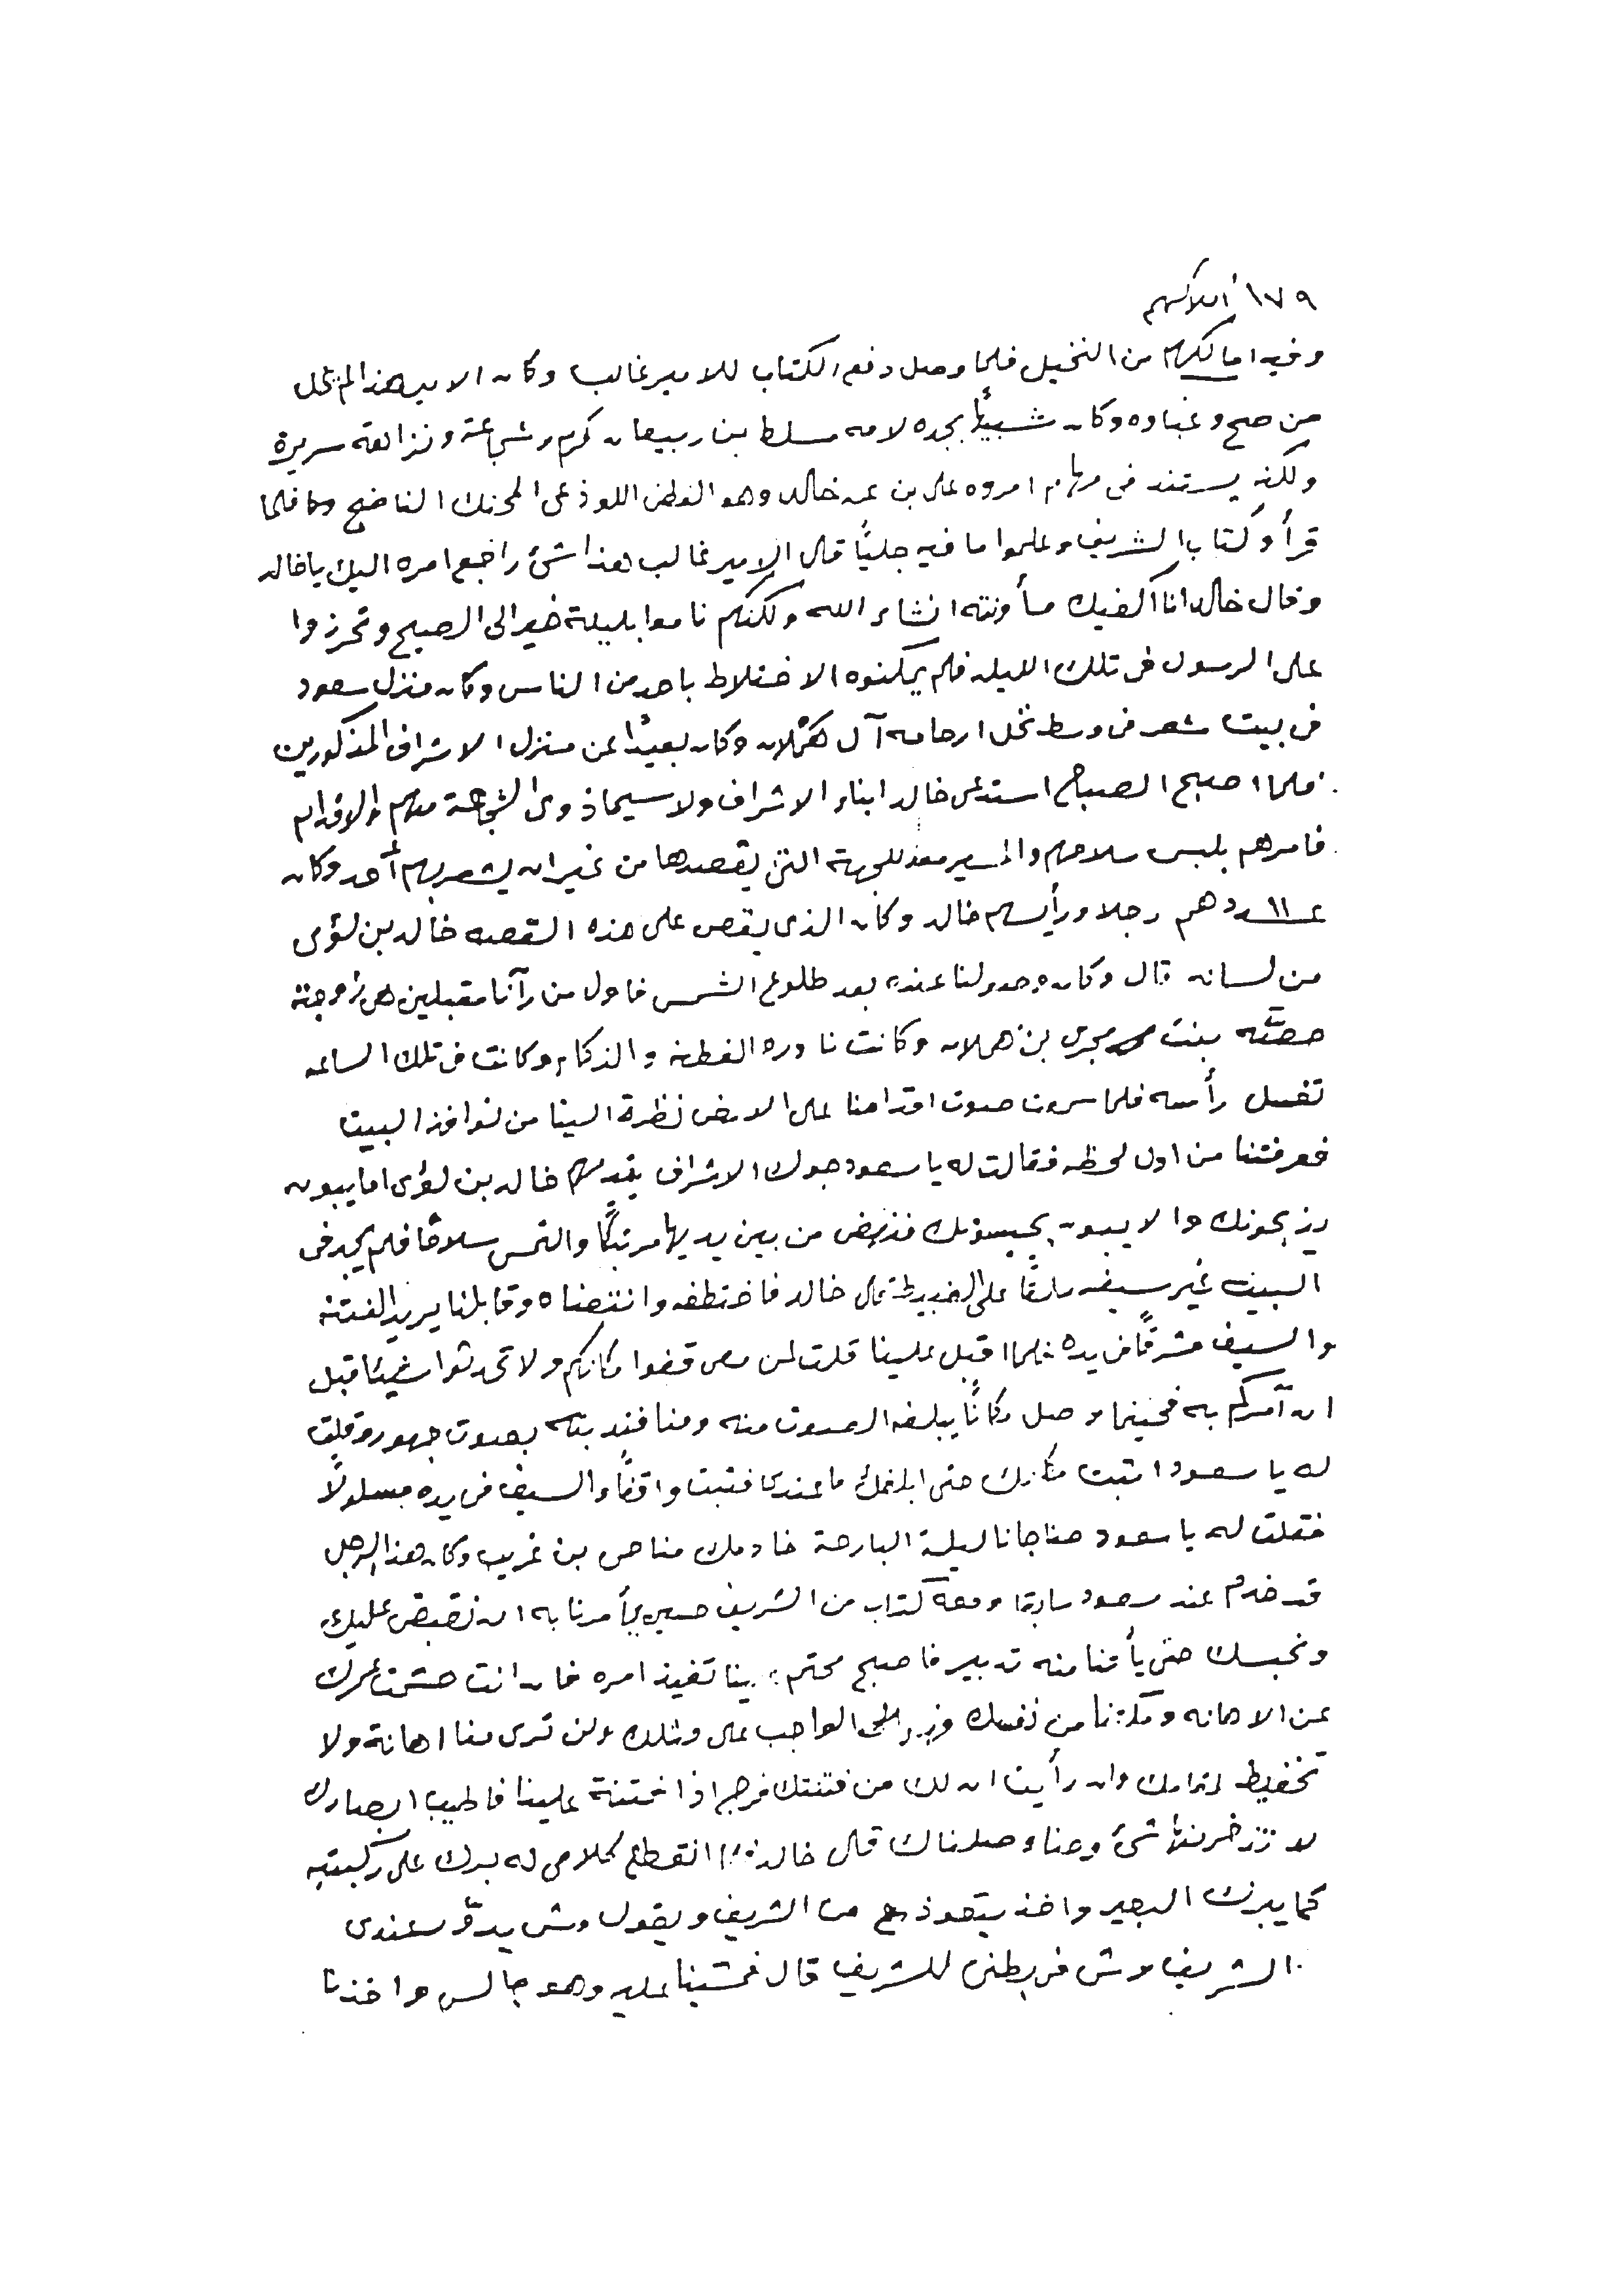 ١٧٩ أملاكهم
وفيه امالكهم من النخيل فلما وصل دفع الكتاب للامير غالب وكان الامير هذا لم يخل
من صح وغباوه وكان شبيهاً بجده لامه مسلط بن ربيعان كرم وشجاعة ونزاهة سريرة
ولكنه يستند في مهام اموره على بن عمه خالد وهو الفطن اللوذعي المحنك الناضج فلما
قرأو كتاب الشريف وعلموا ما فيه جليًا قال الامير غالب هذا شئ راجع امره اليك يا خالد
وقال خالد انا اكفيك مأونته انشاء الله ولكنهم ناموا بليلة خير الى الصبح وتحرزوا
على الرسول في تلك الليله فلم يمكنوه الاختلاط باحد من الناس وكان منزل سعود
في بيت شعر في وسط نخل ارحامه آل هملان وكان بعيدًا عن منزل الاشراف المذكورين
فلما اصبح الصباح استدعى خالد ابناء الاشراف ولا سيما ذوى الشجاعة منهم والاقدام
فامرهم بلبس سلاحهم والمسير معه للجهة التي يقصدها من غير ان يشعر بهم أحد وكان
عددهم ١١ رجلا ورأيسهم خالد وكان الذي يقص على هذه القصه خالد بن لؤى
من لسانه قال وكان وصولنا عنده بعد طلوع الشمس فاول من رآنا مقبلين هي زوجته
حصّه بنت مجرى بن هملان وكانت نادره الفطنه والذكاء وكانت في تلك الساعه
تغسل رأسه فلما سمعت صوت اقدامنا على الارض نظرة الينا من نوافذ البيت
فعرفتنا من اول لحظه فقالت له يا سعود جوك الاشراف يقدمهم خالد بن لؤى اما يبون
يذبحونك والا يبون يحبسونك فنهض من بين يديها مرتبكًا والتمس سلاحًا فلم يجد في
البيت غير سيفه معلقًا على الخبيط قال خالد فاختطفه وانتضاه وقابلنا يريد الفتنه
والسيف مشرقًا في يده فلما اقبل علينا قلت لمن معي قفوا مكانكم ولا تحدثوا شيئا قبل
ان آمركم به فحينما وصل مكانًا يبلغه الصوت منه ومنا فندبته بصوت جهور وقلت
له يا سعود اثبت مكانك حتى ابلغك ما عندي فثبت واقفًا والسيف في يده مسلولًا
فقلت له يا سعود حنا جانا ليلة البارحة خادمك مناحي بن غريب وكان هذا الرجل
قد خدم عند سعود سابقا ومعه كتاب من الشريف حسين يأمرنا به ان نقبض عليك
ونحبسك حتى يأتنا منه تدبير فاصبح محتم علينا تنفيذ امره فان انت حشمت عمرك
عن الاهانه ومكنتنا من نفسك وزين الواجب على مثلك ولن ترى منا اهانة ولا
تخفيظ لمقامك وان رأيت ان لك من فتنتك فرج اذا فتنة علينا فاطيب ابصارك
لا تذخر منها شئ وحنا وصلناك قال خالد فلما انقطع كلامي له برك على ركبتيه
كما يبرك البعير واخذ يتعوذ من الشريف ويقول وش يدوّر عندى
الشريف وش في بطنى للشريف قال فمشينا عليه وهو جالس واخذنا